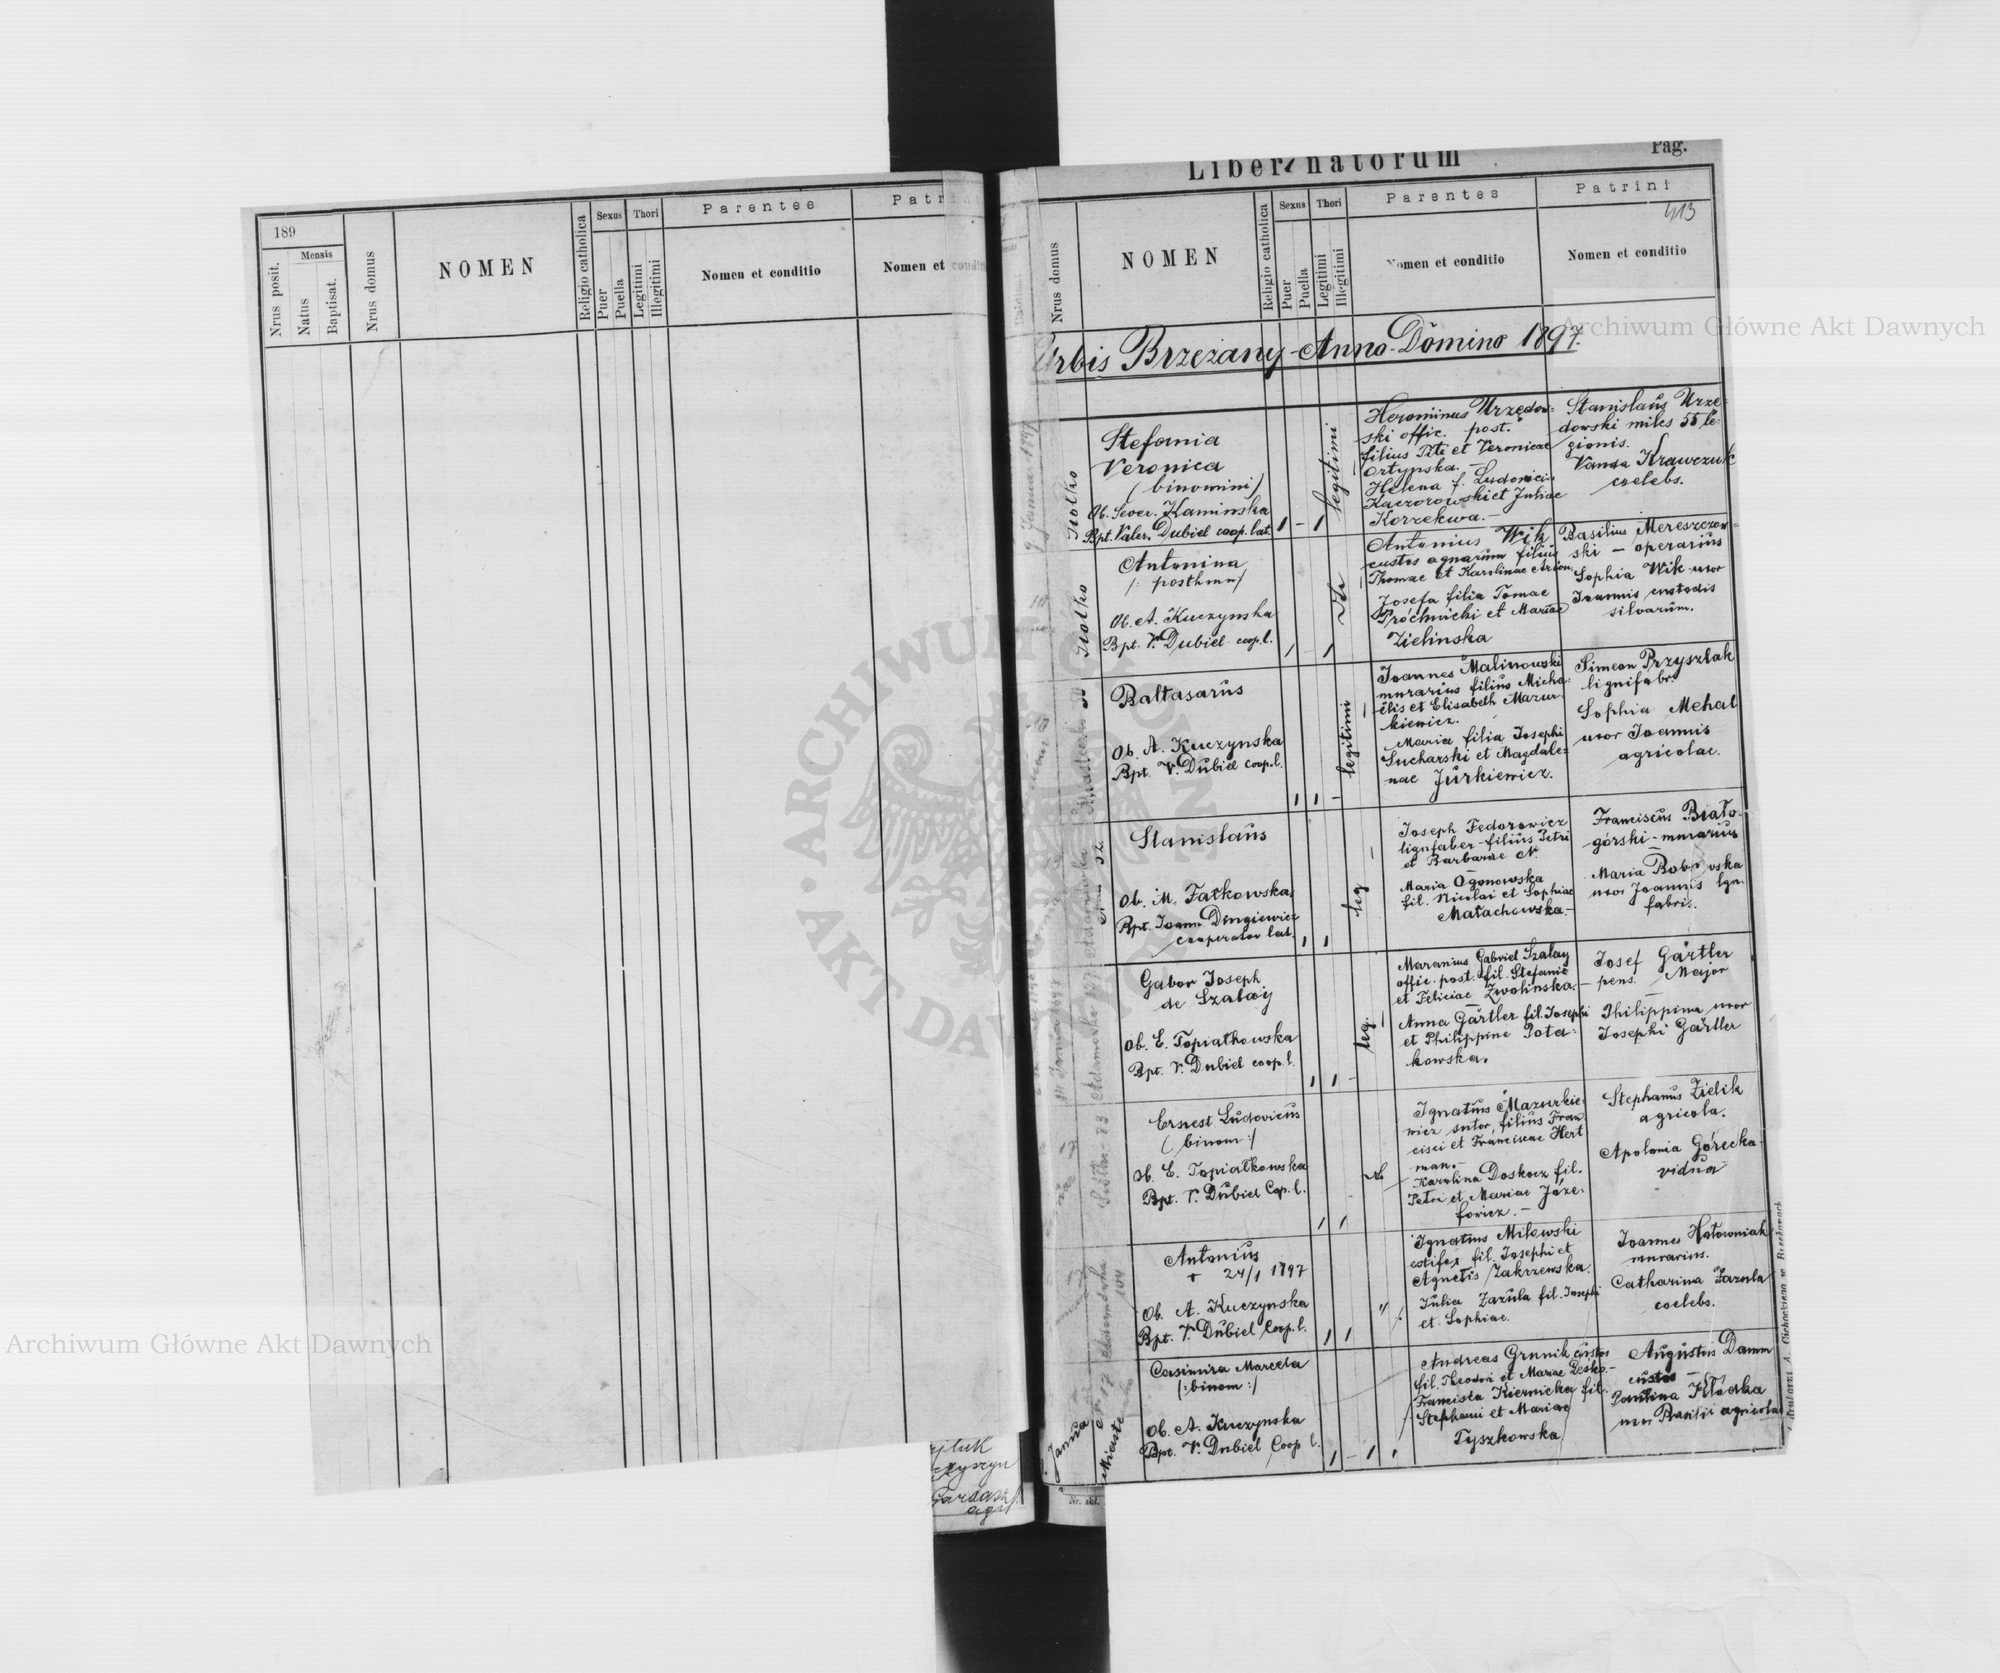 189
Nrus posit.
Mensis
Natus
Baptisat.
Nrus domus
NOMEN
Religio catholica
Sexus
Puer
Puella
Thori
Legitimi
Illegitimi
Parentes
Nomen et conditio
Patrini
Nomen et conditio
Liber natorum
Pag.
413
Nrus domus
NOMEN
Religio catholica
Sexus
Puer
Puella
Thori
Legitimi
Illegitimi
Parentes
Nomen et conditio
Patrini
Nomen et conditio
Urbis Brzeżany - Anno Domino 1897.
Siołko
Stefania
Veronica
(binomini)
Ob. Sever. Kaminska
Bpt. Valer. Dubiel coop. lat.
1 - 1
legitimi
Heronimus Urzędow-
ski offic. post.
filius Titi et Veronicae
Ortynska. -
Helena f. Ludovici
Kaczorowski et Juliae
Korzekwa. -
Stanislaus Urzę-
dowski miles 55 le-
gionis.
Vanda Krawczuk
coelebs.
Siołko
Antonina
Ob. A. Kuczynska
Bpt. V. Dubiel coop. l.
1 - 1
Antonius Wik
custos agnarum filius
Thomae et Karolinae
Josefa filia Tomae
Próchnicki et Mariae
Zielinska
Basilius Mereszczow-
ski - operarius
Sophia Wik uxor
Joannis custodis
silvarum.
Baltasarus
Ob. A. Kuczynska
Bpt. V. Dubiel coop. l.
1 1 -
legitimi
Joannes Malinowski
murarius filius Micha-
elis et Elisabeth Mazur-
kiewicz.
Maria filia Josephi
Sucharski et Magdale-
nae Jurkiewicz.
Simeon Przyszlak
lignifabr.
Sophia Mehal
uxor Joannis
agricolae.
Stanislaus
Ob. M. Fatkowska
Bpt. Joann Dengiewicz
cooperator lat.
1 1
leg
Joseph Fedorowicz
lignfaber - filius Petri
et Barbarae N.
Maria Ogonowska
fil. Nicolai et Sophiae
Małachowska. -
Franciscus Biało-
górski - murarius
Maria Bobrowska
uxor Joannis lgn-
fabri.
Gabor Joseph
de Szalay
Ob. E. Topiałkowska
Bpt. V. Dubiel coop. l.
1 1 -
leg.
Marianus Gabriel Szalay
offic. post. fil. Stefanie
et Feliciae Zwolinska. -
Anna Gärtler fil. Josephi
et Philippine Pota-
kowska.
Josef Gärtler
pens. Major
Philippina uxor
Josephi Gärtler
Ernest Ludovicus
(binom:)
Ob. E. Topiałkowska
Bpt. V. Dubiel Cop. l.
1 1
Ignatius Mazurkie-
wicz sutor, filius Fran-
cisci et Franciscae Hert
man.
Karolina Doskocz fil.
Petri et Mariae Józe-
fowicz. -
Stephanus Zielik
agricola.
Apolonia Górecka
vidua
Antonius
+ 24/1 1897
Ob. A. Kuczynska
Bpt. V. Dubiel Coop. l.
1 1
Ignatius Milowski
fil. Josephi et
Agnetis Zakrzewska.
Julia Zazula fil. Josephi
et Sophiae.
Joannes Hołowniak
murarius.
Catharina Zazula
coelebs.
Janua
Miasto
Casimira Marcela
(:binom:)
Ob. A. Kuczynska
Bpt. V. Dubiel Coop l.
1 - 1
Andreas Grunik custos
fil. Theodori et Mariae
Francisca Kiernicka fil.
Stephani et Mariae
Tyszkowska.
Augustus Damm
custos
Paulina Kłodka
uxor Basilii agricolae
Archiwum Główne Akt Dawnych
Archiwum Główne Akt Dawnych
ARCHIWUM GŁÓWNE
AKT DAWNYCH